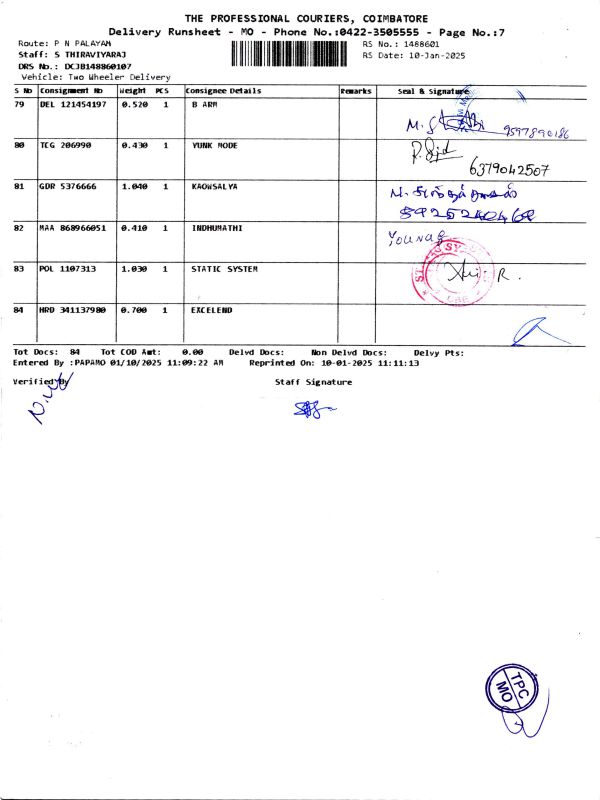 THE PROFESSIONAL COURIERS, COIMBATORE
Delivery Runsheet - MO - Phone No.:0422-3505555 - Page No.:7
Route: P N PALAYAM
RS No.: 1488601
Staff: S THIRAVIYARAJ
RS Date: 10-Jan-2025
DRS No.: DCJB148860107
Vehicle: Two Wheeler Delivery
S No Consignment No Weight PCS Consignee Details Remarks Seal & Signature
79 DEL 121454197 0.520 1 B ARM
9597890186
80 TCG 206990 0.430 1 YUNK MODE
6379042507
81 GDR 5376666 1.040 1 KAOWSALYA
82 MAA 868966051 0.410 1 INDHUMATHI
83 POL 1107313 1.030 1 STATIC SYSTEM
R.
84 HRD 341137980 0.700 1 EXCELEND
Tot Docs: 84 Tot COD Amt: 0.00 Delvd Docs: Non Delvd Docs: Delvy Pts:
Entered By :PAPAMO 01/10/2025 11:09:22 AM Reprinted On: 10-01-2025 11:11:13
Verified By Staff Signature
TPC
MO